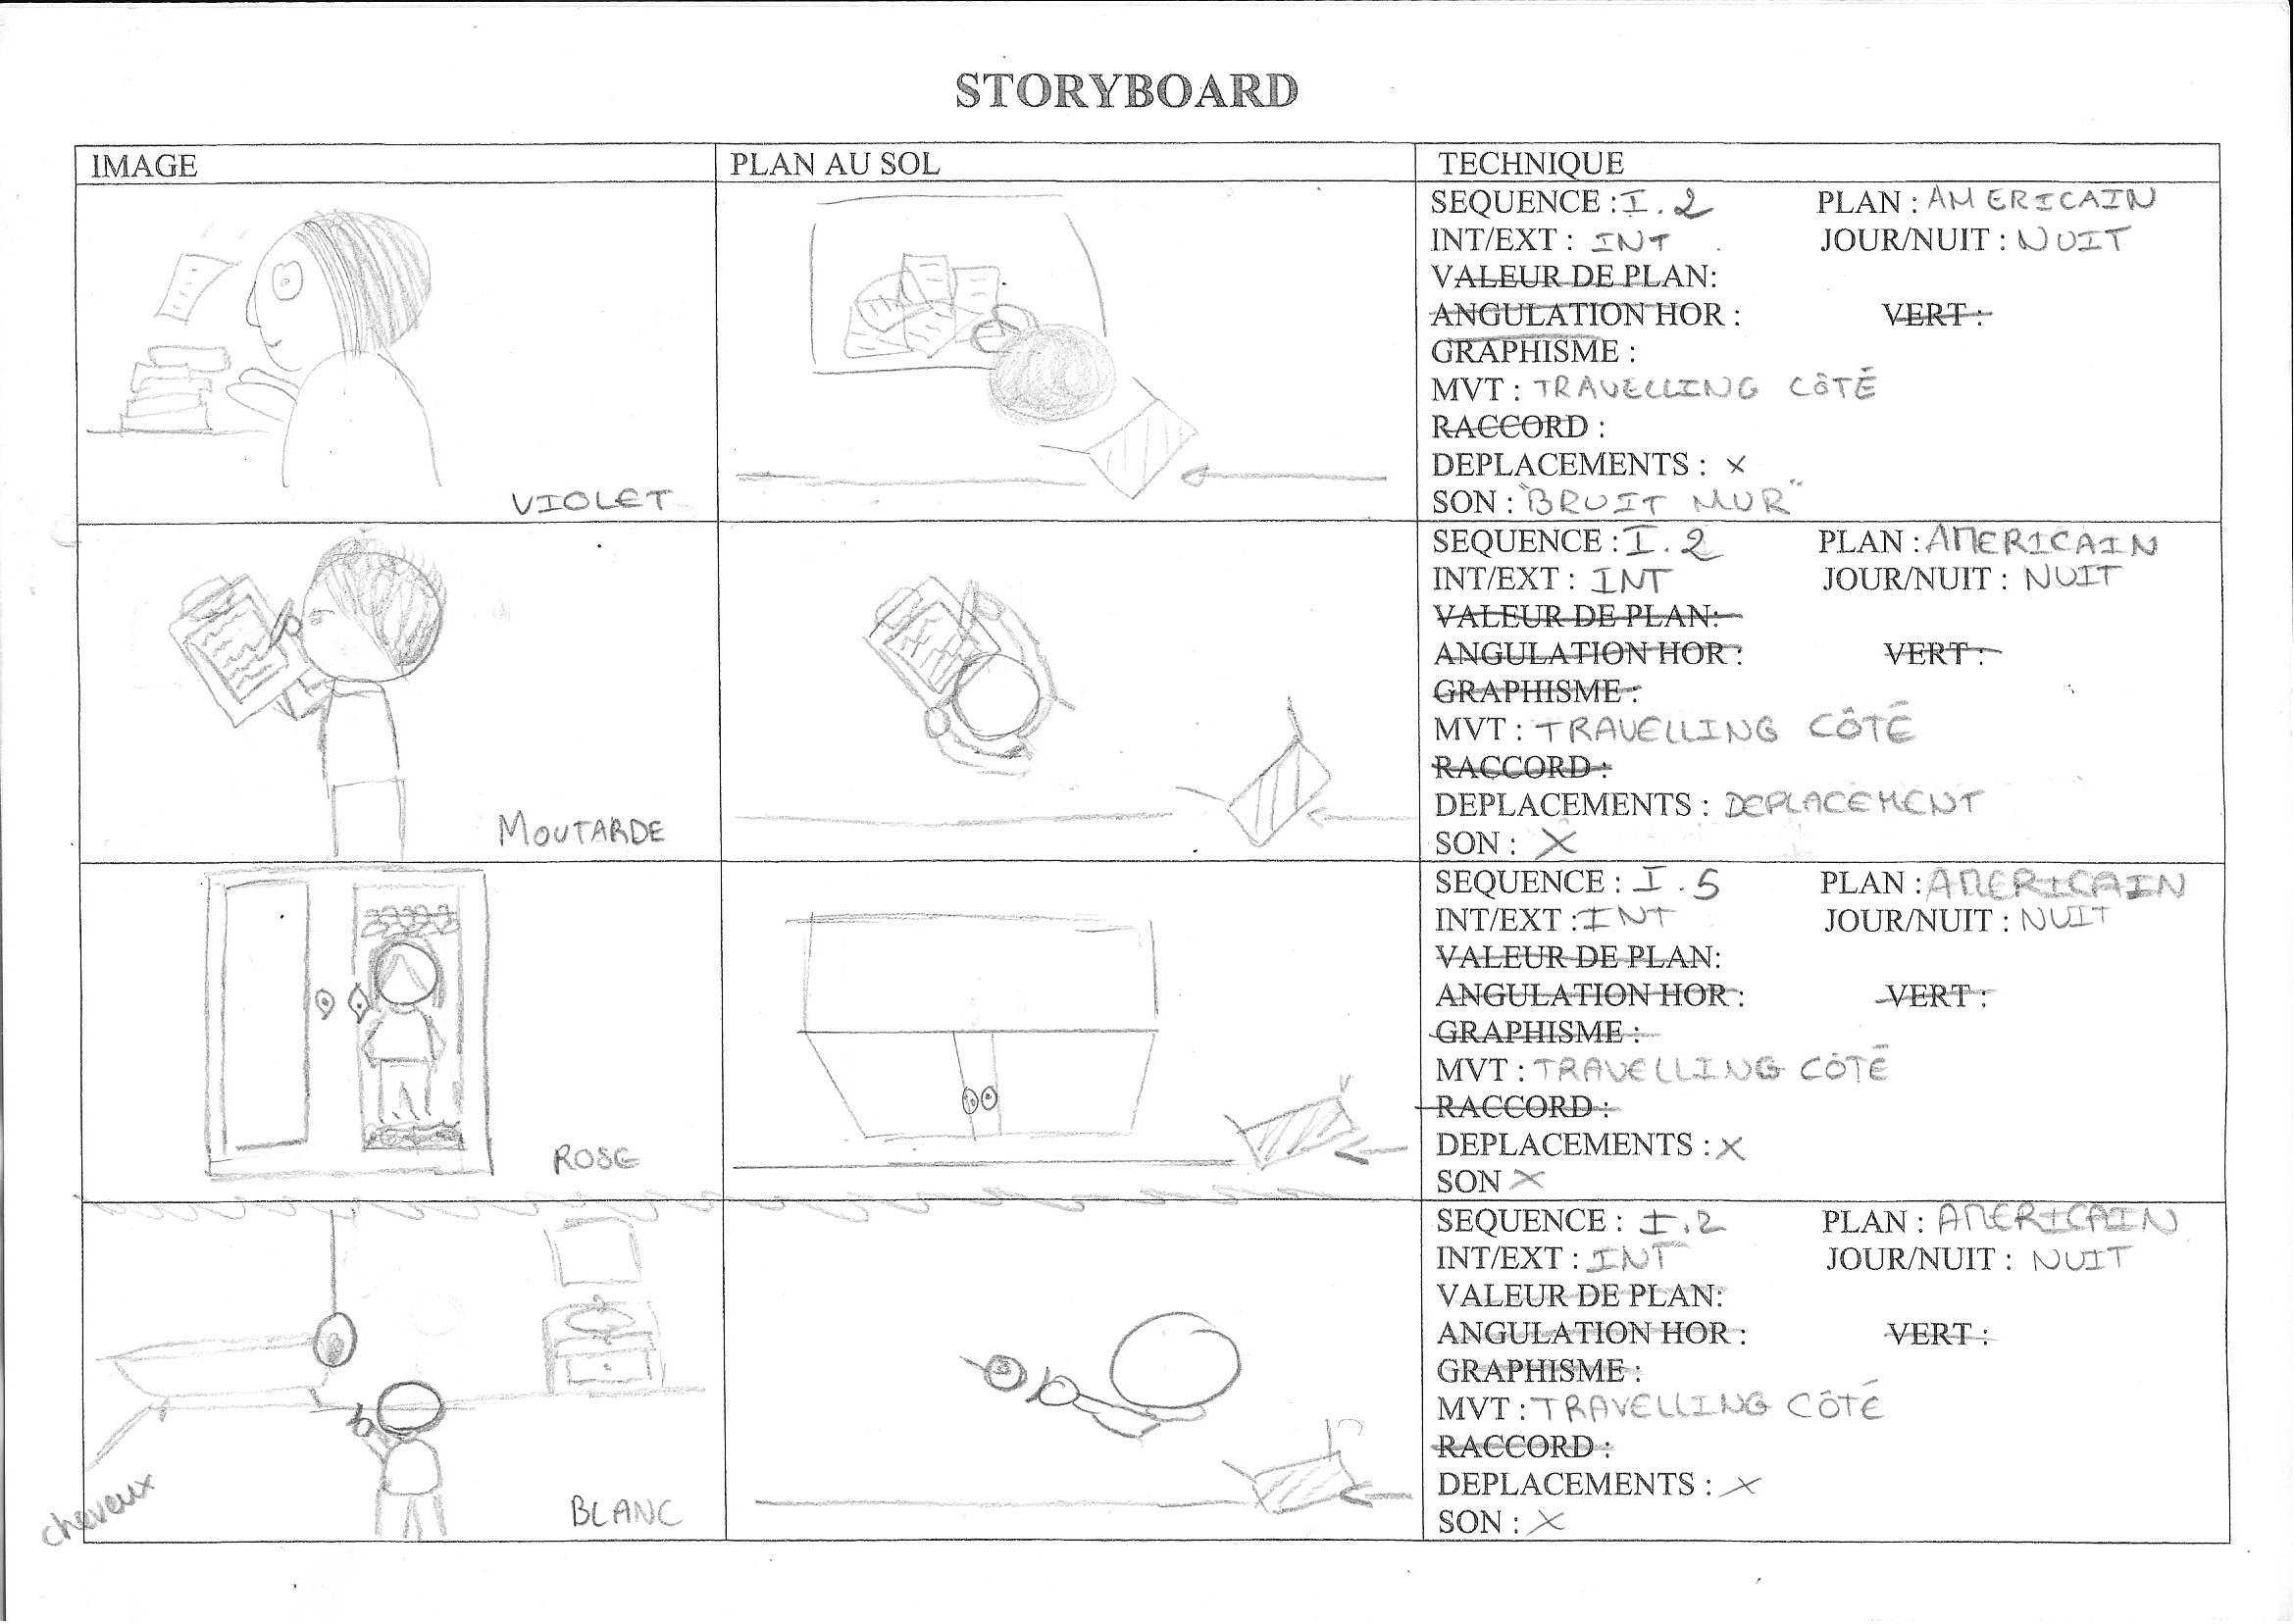 STORYBOARD
IMAGE PLAN AU SOL TECHNIQUE
VIOLET
SEQUENCE : I.2 PLAN : AMERICAIN
INT/EXT : INT JOUR/NUIT : NUIT
VALEUR DE PLAN:
ANGULATION HOR : VERT :
GRAPHISME :
MVT : TRAVELLING CÔTÉ
RACCORD :
DEPLACEMENTS : X
SON : "BRUIT MUR"
MOUTARDE
SEQUENCE : I.2 PLAN : AMERICAIN
INT/EXT : INT JOUR/NUIT : NUIT
VALEUR DE PLAN:
ANGULATION HOR : VERT :
GRAPHISME :
MVT : TRAVELLING CÔTÉ
RACCORD :
DEPLACEMENTS : DEPLACEMENT
SON : X
ROSE
SEQUENCE : I.5 PLAN : AMERICAIN
INT/EXT : INT JOUR/NUIT : NUIT
VALEUR DE PLAN:
ANGULATION HOR : VERT :
GRAPHISME :
MVT : TRAVELLING CÔTÉ
RACCORD :
DEPLACEMENTS : X
SON X
cheveux
BLANC
SEQUENCE : I.2 PLAN : AMERICAIN
INT/EXT : INT JOUR/NUIT : NUIT
VALEUR DE PLAN:
ANGULATION HOR : VERT :
GRAPHISME :
MVT : TRAVELLING CÔTÉ
RACCORD :
DEPLACEMENTS : X
SON : X